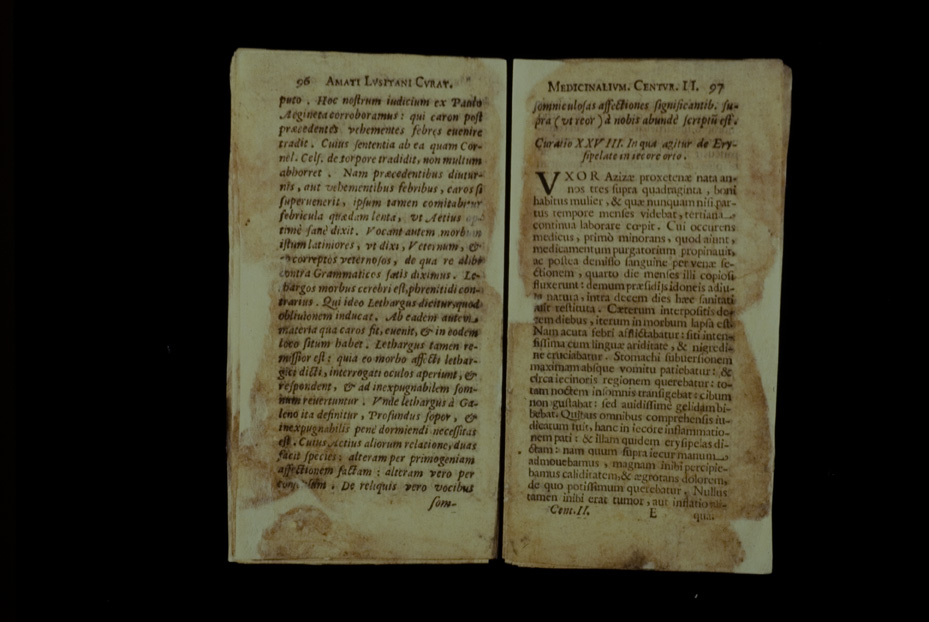 96 AMATI LVSITANI CVRAT.
puto. Hoc nostrum iudicium ex Paulo
Aegineta corroboramus: qui caron post
præcedentes vehementes febres euenire
tradit. Cuius sententia ab ea quam Cor-
nel. Cels. de torpore tradidit, non multum
abhorret. Nam præcedentibus diutur-
nis, aut vehementibus febribus, caros si
superuenerit, ipsum tamen comitabitur
febricula quædam lenta, vt Aetius
timè sanè dixit. Vocant autem morbum
istum latiniores, vt dixi, Veternum, &
correptos veternosos, de qua re alibi
contra Grammaticos satis diximus. Le-
thargos morbus cerebri est, phrenitidi con-
trarius. Qui ideo Lethargus dicitur, quod
obliuionem inducat. Ab eadem autem
materia qua caros fit, euenit, & in eodem
loco situm habet. Lethargus tamen re-
missior est: quia eo morbo affecti lethar-
gici dicti, interrogati oculos aperiunt, &
respondent, & ad inexpugnabilem som-
num reuertuntur. Vnde lethargus à Ga-
leno ita definitur, Profundus sopor, &
inexpugnabilis penè dormiendi necessitas
est. Cuius Aetius aliorum relatione, duas
facit species: alteram per primogeniam
affectionem factam: alteram vero per
De reliquis vero vocibus
som-
MEDICINALIVM. CENTVR. II. 97
somniculosas affectiones significantib. su-
pra (vt reor) à nobis abundè scriptū est.
Curatio XXVIII. In qua agitur de Ery-
sipelate in iecore orto.
VXOR Azizæ proxetenæ nata an-
nos tres supra quadraginta, boni
habitus mulier, & quæ nunquam nisi par-
tus tempore menses videbat, tertiana
continua laborare cœpit. Cui occurens
medicus, primò minorans, quod aiunt,
medicamentum purgatorium propinauit,
ac postea demisso sanguine per venæ se-
ctionem, quarto die menses illi copiosi
fluxerunt: demum præsidijs idoneis adiu-
ta natura, intra decem dies hæc sanitati
est restituta. Cæterum interpositis de-
cem diebus, iterum in morbum lapsa est.
Nam acuta febri afflictabatur: siti inten-
sissima cum linguæ ariditate, & nigredi-
ne cruciabatur. Stomachi subuersionem
maximam absque vomitu patiebatur: &
circa iecinoris regionem querebatur: to-
tam noctem insomnis transigebat: cibum
non gustabat: sed auidissimè gelidam bi-
bebat. Quibus omnibus comprehensis iu-
dicatum fuit, hanc in iecore inflammatio-
nem pati: & illam quidem erysipelas di-
ctam: nam quum supra iecur manum
admouebamus, magnam inibi percipie-
bamus caliditatem, & ægrotans dolorem,
de quo potissimum querebatur. Nullus
tamen inibi erat tumor, aut inflatio
Cent. II. E qua: